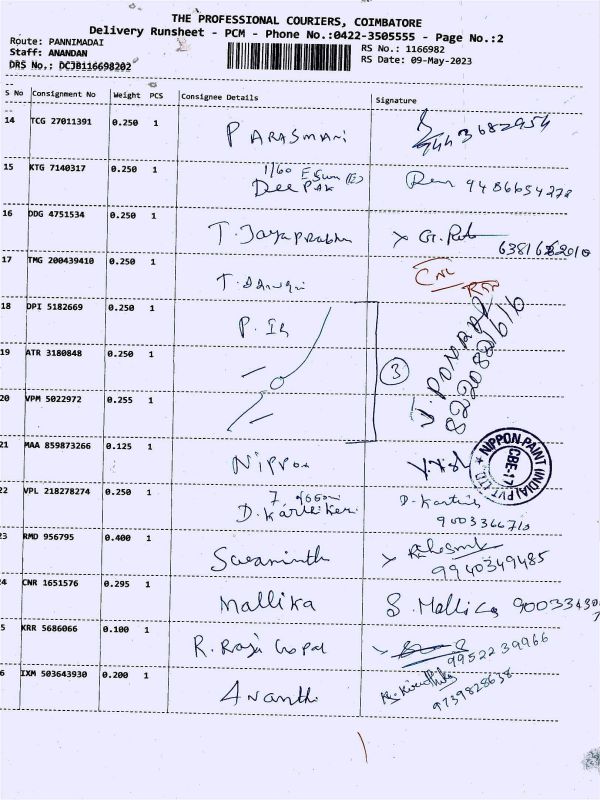 THE PROFESSIONAL COURIERS, COIMBATORE
Delivery Runsheet - PCM - Phone No.:0422-3505555 - Page No.:2
Route: PANNIMADAI
RS No.: 1166982
Staff: ANANDAN
RS Date: 09-May-2023
DRS No.: DCJB116698202
S No Consignment No Weight PCS Consignee Details Signature
14 TCG 27011391 0.250 1 PARASMANI 9443682954
15 KTG 7140317 0.250 1 1/60 Deepak 9486654278
16 DDG 4751534 0.250 1 T. Jayaprabha
17 TMG 200439410 0.250 1 CNL
18 DPI 5182669 0.250 1
19 ATR 3180848 0.250 1 3 PONRAJ
20 VPM 5022972 0.255 1
21 MAA 859873266 0.125 1 Nippon
NIPPON PAINT (INDIA) PVT. LTD. CBE-17
22 VPL 218278274 0.250 1 D. Karthikeri D. Kartik
9003366710
23 RMD 956795 0.400 1 Swaminth
9940349485
24 CNR 1651576 0.295 1 Mallika S. Mallica
5 KRR 5686066 0.100 1 R. Raja Gopal 9952239966
6 IXM 503643930 0.200 1 Ananth
9739828638